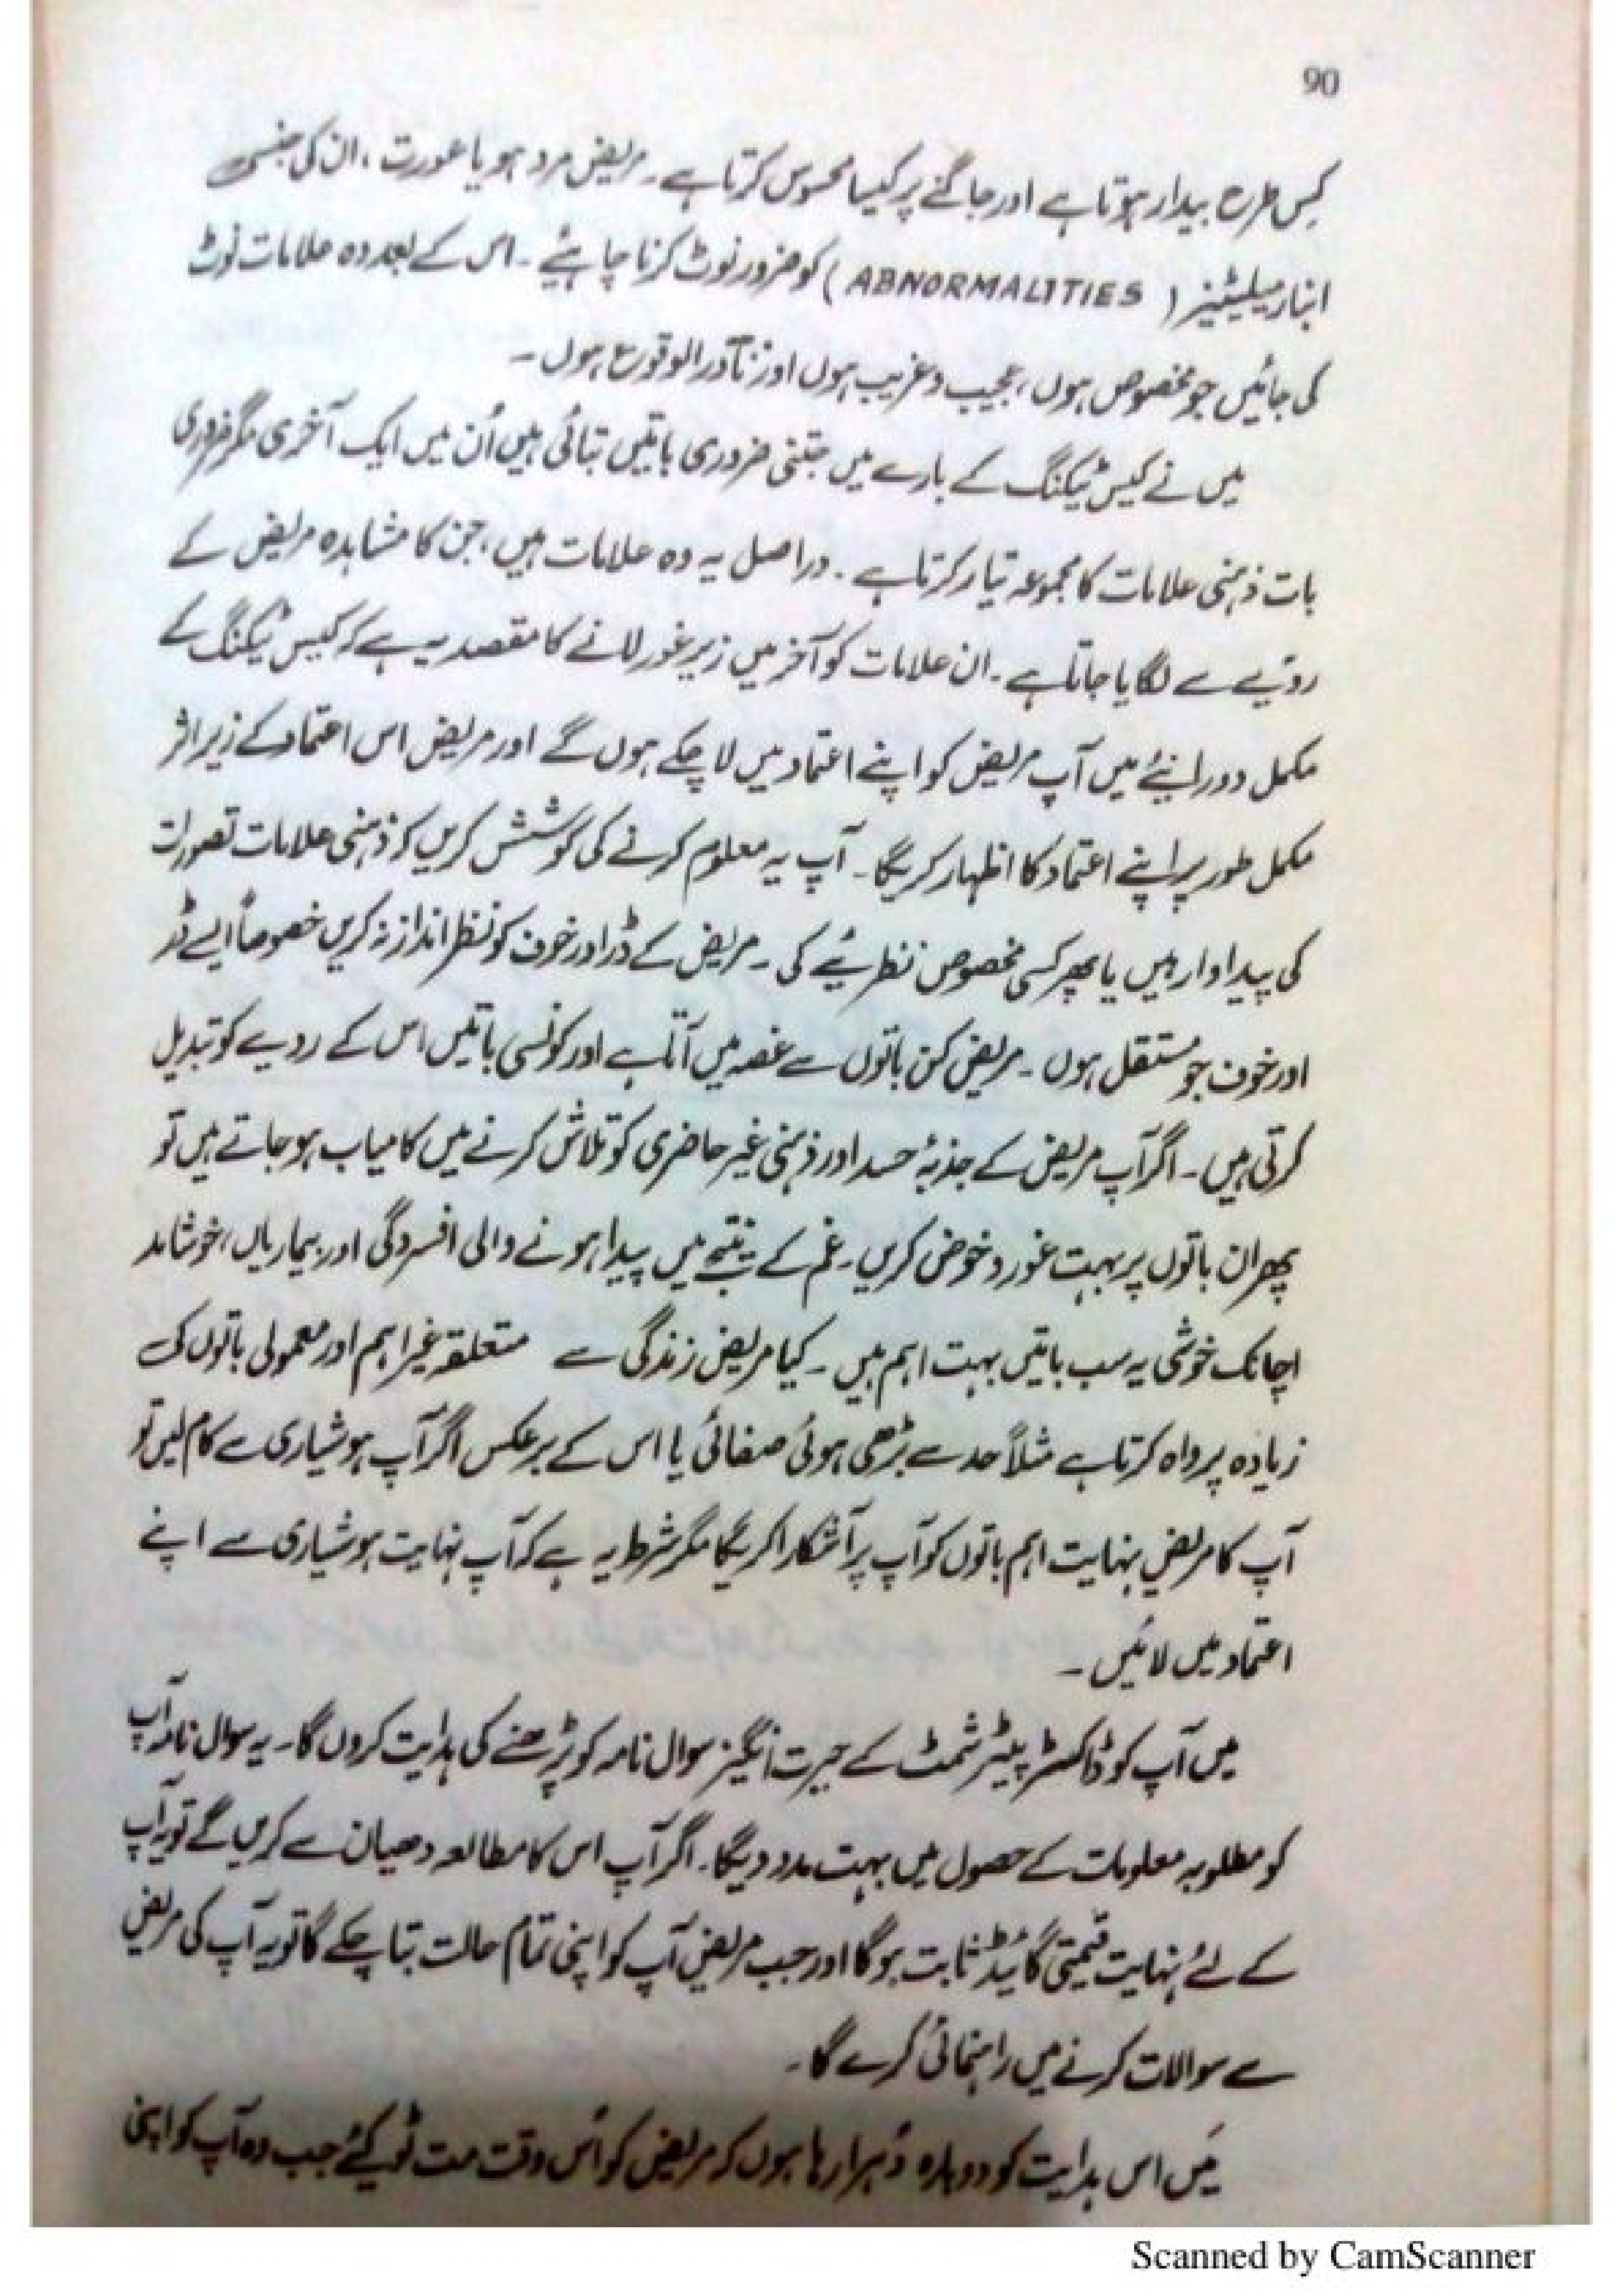 90
کس طرح بیدار ہوتا ہے اور جاگنے پر کیسا محسوس کرتا ہے۔ مریض مرد ہو یا عورت، ان کی جنسی
ابنارمیلیٹیز (ABNORMALITIES) کو ضرور نوٹ کرنا چاہئیے۔ اس کے بعد وہ علامات نوٹ
کی جائیں جو مخصوص ہوں، عجیب و غریب ہوں اور نادرالوقوع ہوں۔
میں نے کیس ٹیکنگ کے بارے میں جتنی ضروری باتیں بتائی ہیں اُن میں ایک آخری مگر ضروری
بات ذہنی علامات کا مجموعہ تیار کرتا ہے۔ دراصل یہ وہ علامات ہیں، جن کا مشاہدہ مریض کے
روئیے سے لگایا جاتا ہے۔ ان علامات کو آخر میں زیرِ غور لانے کا مقصد یہ ہے کہ کیس ٹیکنگ کے
مکمل دورانیئے میں آپ مریض کو اپنے اعتماد میں لا چکے ہوں گے اور مریض اس اعتماد کے زیر اثر
مکمل طور پر اپنے اعتماد کا اظہار کریگا۔ آپ یہ معلوم کرنے کی کوشش کریں کہ ذہنی علامات تصورات
کی پیداوار ہیں یا پھر کسی مخصوص نظریئے کی۔ مریض کے ڈر اور خوف کو نظر انداز نہ کریں خصوصاً ایسے ڈر
اور خوف جو مستقل ہوں۔ مریض کن باتوں سے غصہ میں آتا ہے اور کونسی باتیں اس کے رویے کو تبدیل
کرتی ہیں۔ اگر آپ مریض کے جذبۂ حسد اور ذہنی غیر حاضری کو تلاش کرنے میں کامیاب ہو جاتے ہیں تو
پھر ان باتوں پر بہت غور و خوض کریں۔ غم کے نتیجے میں پیدا ہونے والی افسردگی اور بیماریاں، خوشامد
اچانک خوشی یہ سب باتیں بہت اہم ہیں۔ کیا مریض زندگی سے متعلقہ غیر اہم اور معمولی باتوں کی
زیادہ پرواہ کرتا ہے مثلاً حد سے بڑھی ہوئی صفائی یا اس کے برعکس اگر آپ ہوشیاری سے کام لیں تو
آپ کا مریض نہایت اہم باتوں کو آپ پر آشکارا کریگا مگر شرط یہ ہے کہ آپ نہایت ہوشیاری سے اپنے
اعتماد میں لائیں۔
میں آپ کو ڈاکٹر پیٹر شمٹ کے حیرت انگیز سوال نامہ کو پڑھنے کی ہدایت کروں گا۔ یہ سوال نامہ آپ
کو مطلوبہ معلومات کے حصول میں بہت مدد دیگا۔ اگر آپ اس کا مطالعہ دھیان سے کریں گے تو یہ آپ
کے لئے نہایت قیمتی گائیڈ ثابت ہوگا اور جب مریض آپ کو اپنی تمام حالت بتا چکے گا تو یہ آپ کی مریض
سے سوالات کرنے میں راہنمائی کرے گا۔
میں اس ہدایت کو دوبارہ دُہرا رہا ہوں کہ مریض کو اُس وقت مت ٹوکیئے جب وہ آپ کو اپنی
Scanned by CamScanner